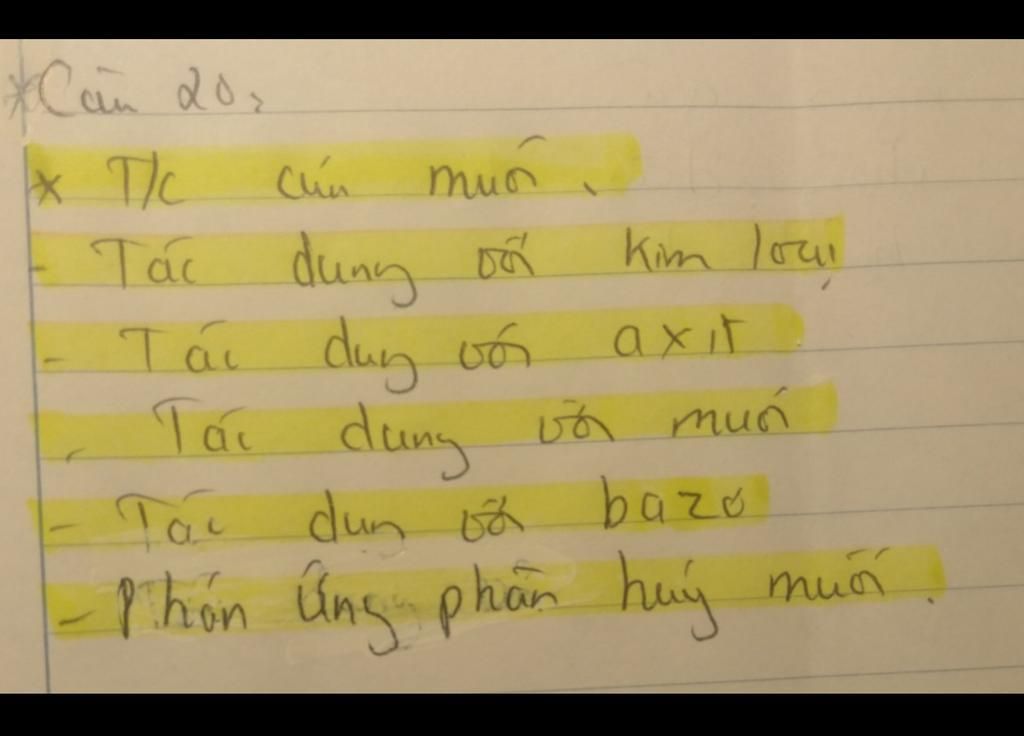 * Câu 20:
x T/c của muối.
- Tác dụng với kim loại
- Tác dung với axit
- Tác dung với muối
- Tác dun với bazơ
- Phản ứng phân huỷ muối.